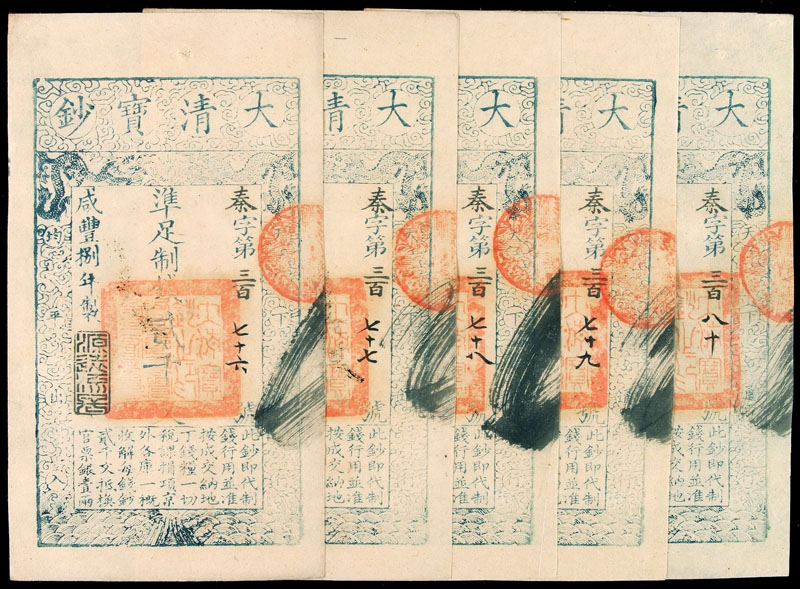 大清寶鈔
秦字第三百七十六號
準足制錢貳千文
咸豐捌年製
此鈔即代制
錢行用並准
按成交納地
丁錢糧一切
稅課捐項京
外各庫一概
收解每錢鈔
貳千文抵換
官票銀壹兩
大清
秦字第三百七十七號
此鈔即代制
錢行用並准
按成交納地
大
秦字第三百七十八號
此鈔即代制
錢行用並准
大
秦字第三百七十九號
此鈔即代制
錢行用並准
大清
秦字第三百八十號
此鈔即代制
錢行用並准
按成交納地